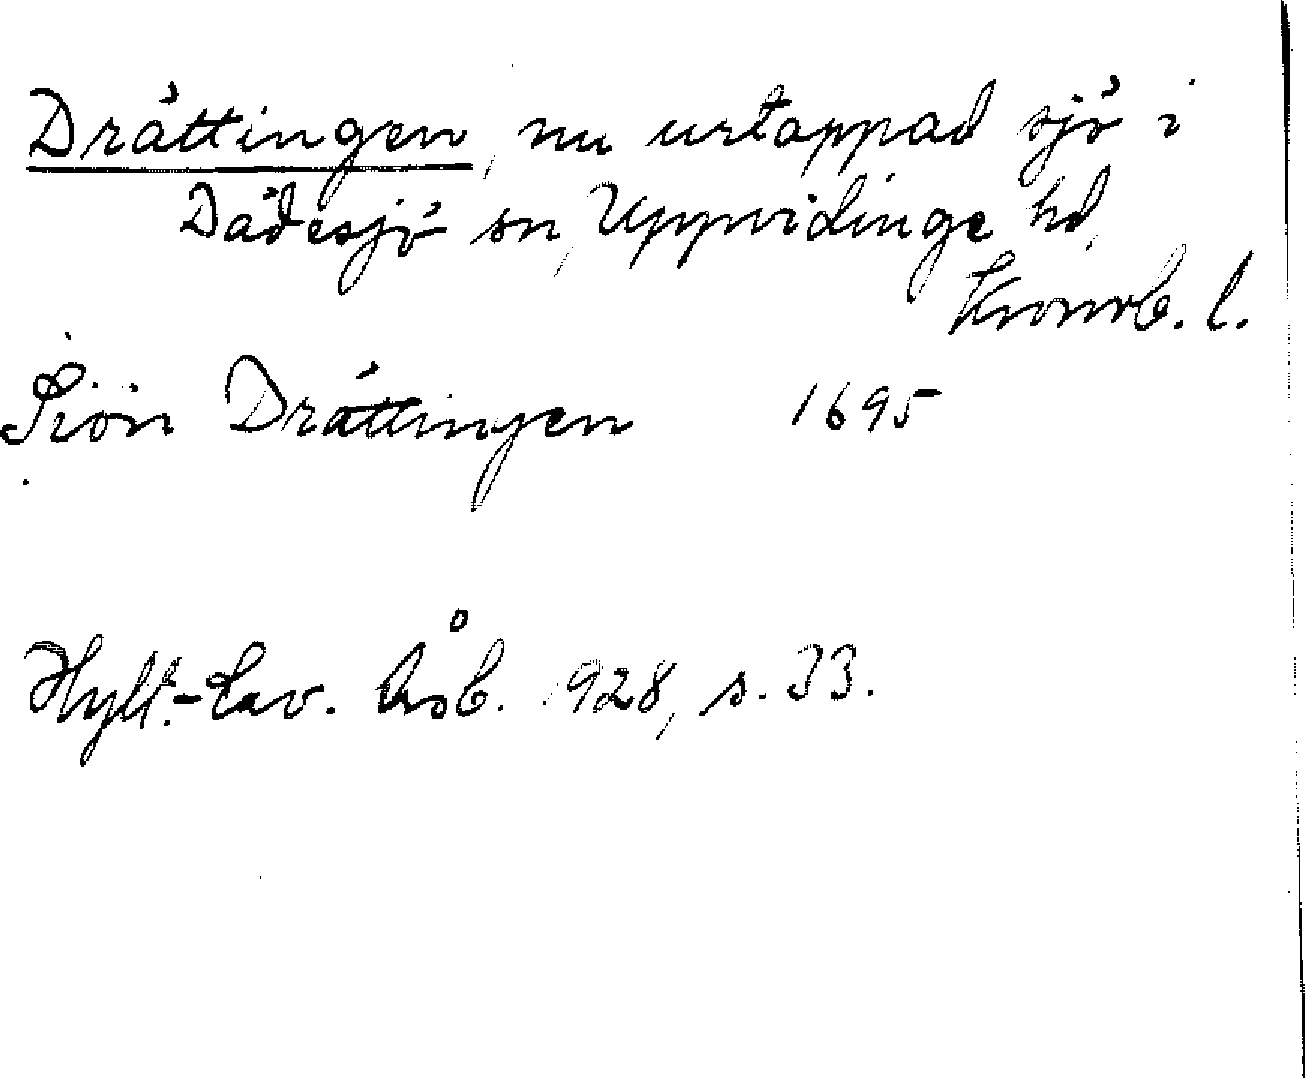 Drättingen, nu urtappad sjö i
Dädesjö sn, Uppvidinge hd,
Kronob. l.
Siön Drättingen 1695
Hylt.-Cav. Åsb. 1928, s. 33.